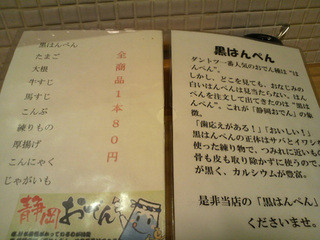 黒はんぺん
たまご
大根
牛すじ
馬すじ
こんぶ
練りもの
厚揚げ
こんにゃく
じゃがいも
全商品1本80円
静岡おでん
黒はんぺん
ダントツ一番人気のおでん種は“は
んぺん”。
しかし、どこを見ても、おなじみの
白いはんぺんは見当たらない。はん
ぺんを注文して出てきたのは“黒は
んぺん”。これが「静岡おでん」の象
徴。
「歯応えがある！」「おいしい！」
黒はんぺんの正体はサバとイワシを
使った練り物で、つみれに近いもの
骨も皮も取り除かずに使うので
が黒く、カルシウムが豊富。
是非当店の「黒はんぺん」
くださいませ。